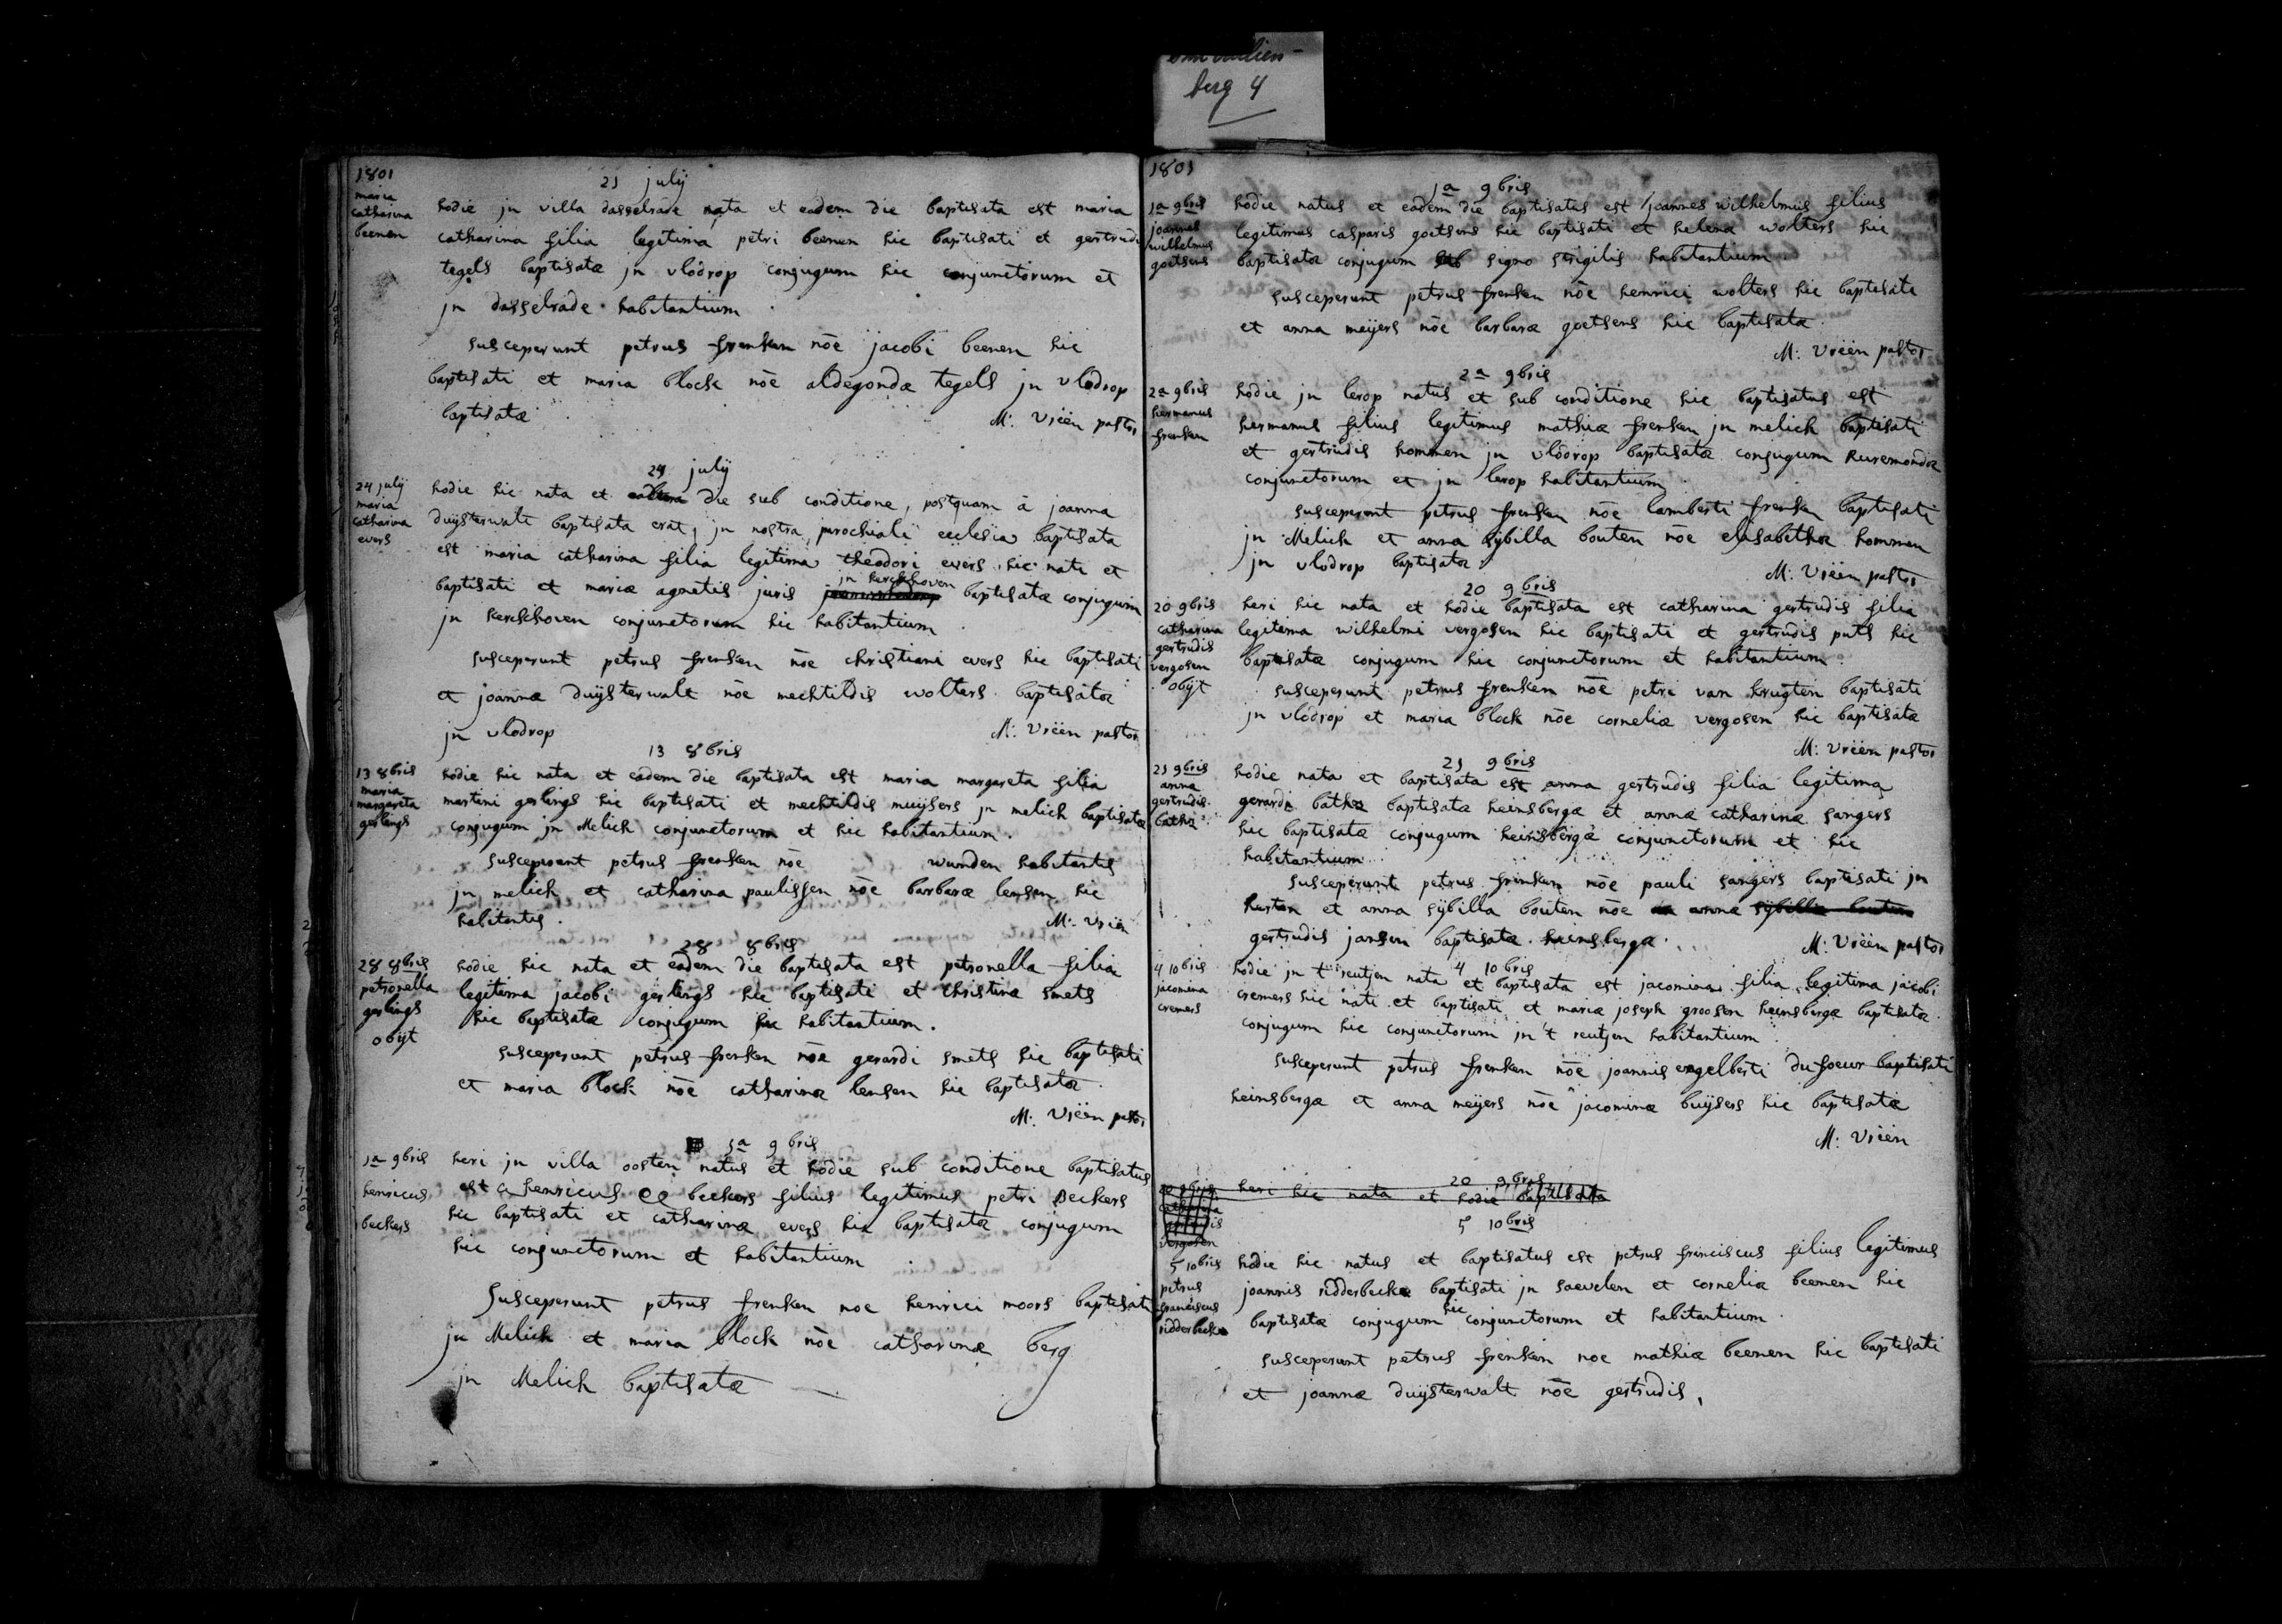 berg 4
1801
21 julij
maria
catharina
beenen
hodie jn villa dasselrade nata et eadem die baptisata est maria
catharina filia legitima petri beenen hic baptisati et gertrudis
tegels baptisatæ jn vlodrop conjugum hic conjunctorum et
jn dasselrade habitantium
susceperunt petrus frenken nōe jacobi beenen hic
baptisati et maria block nōe aldegondæ tegels jn vlodrop
baptisatæ
M: Vrëën pastor
24 julij
24 julij
maria
catharina
evers
hodie hic nata et die sub conditione, postquam à joanna
duijsterwalt baptisata erat, jn nostra parochiali ecclesia baptisata
est maria catharina filia legitima theodori evers hic nati et
jn kerckhoven
baptisati et mariæ agnetis juris baptisatæ conjugum
jn kerckhoven conjunctorum hic habitantium
susceperunt petrus frenken nōe christiani evers hic baptisati
et joannæ duijsterwalt nōe mechtildis wolters baptisatæ
jn vlodrop
M: Vrëën pastor
13 8bris
13 8bris
maria
margareta
gerlings
hodie hic nata et eadem die baptisata est maria margareta filia
martini gerlings hic baptisati et mechtildis muijsers jn melick baptisatæ
conjugum jn Melick conjunctorum et hic habitantium.
susceperunt petrus frenken nōe wunden habitantis
jn melick et catharina paulissen nōe barbaræ lensen hic
habitantis.
M: Vrëën
28 8bris
28 8bris
petronella
gerlings
obijt
hodie hic nata et eadem die baptisata est petronella filia
legitima jacobi gerlings hic baptisati et christinæ smets
hic baptisatæ conjugum hic habitantium.
susceperunt petrus frenken nōe gerardi smets hic baptisati
et maria block nōe catharinæ lensen hic baptisatæ.
M: Vrëën pastor
1a 9bris
1a 9bris
henricus
beckers
heri jn villa oosten natus et hodie sub conditione baptisatus
est henricus beckers filius legitimus petri Beckers
hic baptisati et catharinæ evers hic baptisatæ conjugum
hic conjunctorum et habitantium
Susceperunt petrus frenken noe henrici moors baptisati
jn Melick et maria block nōe catharinæ berg
jn Melick baptisatæ
1801
1a 9bris
1a 9bris
joannes
wilhelmus
goetsens
hodie natus et eadem die baptisatus est joannes wilhelmus filius
legitimus casparis goetsens hic baptisati et helenæ wolters hic
baptisatæ conjugum sub signo strigilis habitantium.
susceperunt petrus frenken nōe henrici wolters hic baptisati
et anna meijers nōe barbaræ goetsens hic baptisatæ.
M: Vrëën pastor
2a 9bris
2a 9bris
hermanus
frenken
hodie jn lerop natus et sub conditione hic baptisatus est
hermanus filius legitimus mathiæ frenken jn melick baptisati
et gertrudis hommen jn vlodrop baptisatæ conjugum Ruremondæ
conjunctorum et jn lerop habitantium
susceperunt petrus frenken nōe lamberti frenken baptisati
jn Melick et anna sijbilla bouten nōe elisabethæ hommen
jn vlodrop baptisatæ.
M: Vrëën pastor
20 9bris
20 9bris
catharina
gertrudis
vergosen
obijt
heri hic nata et hodie baptisata est catharina gertrudis filia
legitima wilhelmi vergosen hic baptisati et gertrudis puts hic
baptisatæ conjugum hic conjunctorum et habitantium.
susceperunt petrus frenken nōe petri van krugten baptisati
jn vlodrop et maria block nōe corneliæ vergosen hic baptisatæ
M: Vrëën pastor
21 9bris
21 9bris
anna
gertrudis
bathæ
hodie nata et baptisata est anna gertrudis filia legitima
gerardi bathæ baptisata heinsbergæ et annæ catharinæ sangers
hic baptisatæ conjugum heinsbergæ conjunctorum et hic
habitantium
susceperunt petrus frenken nōe pauli sangers baptisati jn
et anna sijbilla bouten nōe annæ sijbilla bouten
gertrudis jansen baptisatæ heinsbergæ.
M: Vrëën pastor
4 10bris
4 10bris
jacomina
cremers
hodie jn t reutjen nata et baptisata est jacomina filia legitima jacobi
cremers hic nati et baptisati et mariæ joseph groosen heinsbergæ baptisatæ.
conjugum hic conjunctorum jn 't reutjen habitantium
susceperunt petrus frenken nōe joannis engelberti dusoeur baptisati
heinsbergæ et anna meijers nōe jacominæ buijsers hic baptisatæ
M: Vrëën
20 9bris
vergosen
heri hic nata et hodie baptisata
5 10bris
5 10bris
petrus
franciscus
ridderbecks
hodie hic natus et baptisatus est petrus franciscus filius legitimus
joannis ridderbecks baptisati jn saevelen et corneliæ beenen hic
baptisatæ conjugum hic conjunctorum et habitantium.
susceperunt petrus frenken noe mathiæ beenen hic baptisati
et joannæ duijsterwalt nōe gertrudis,